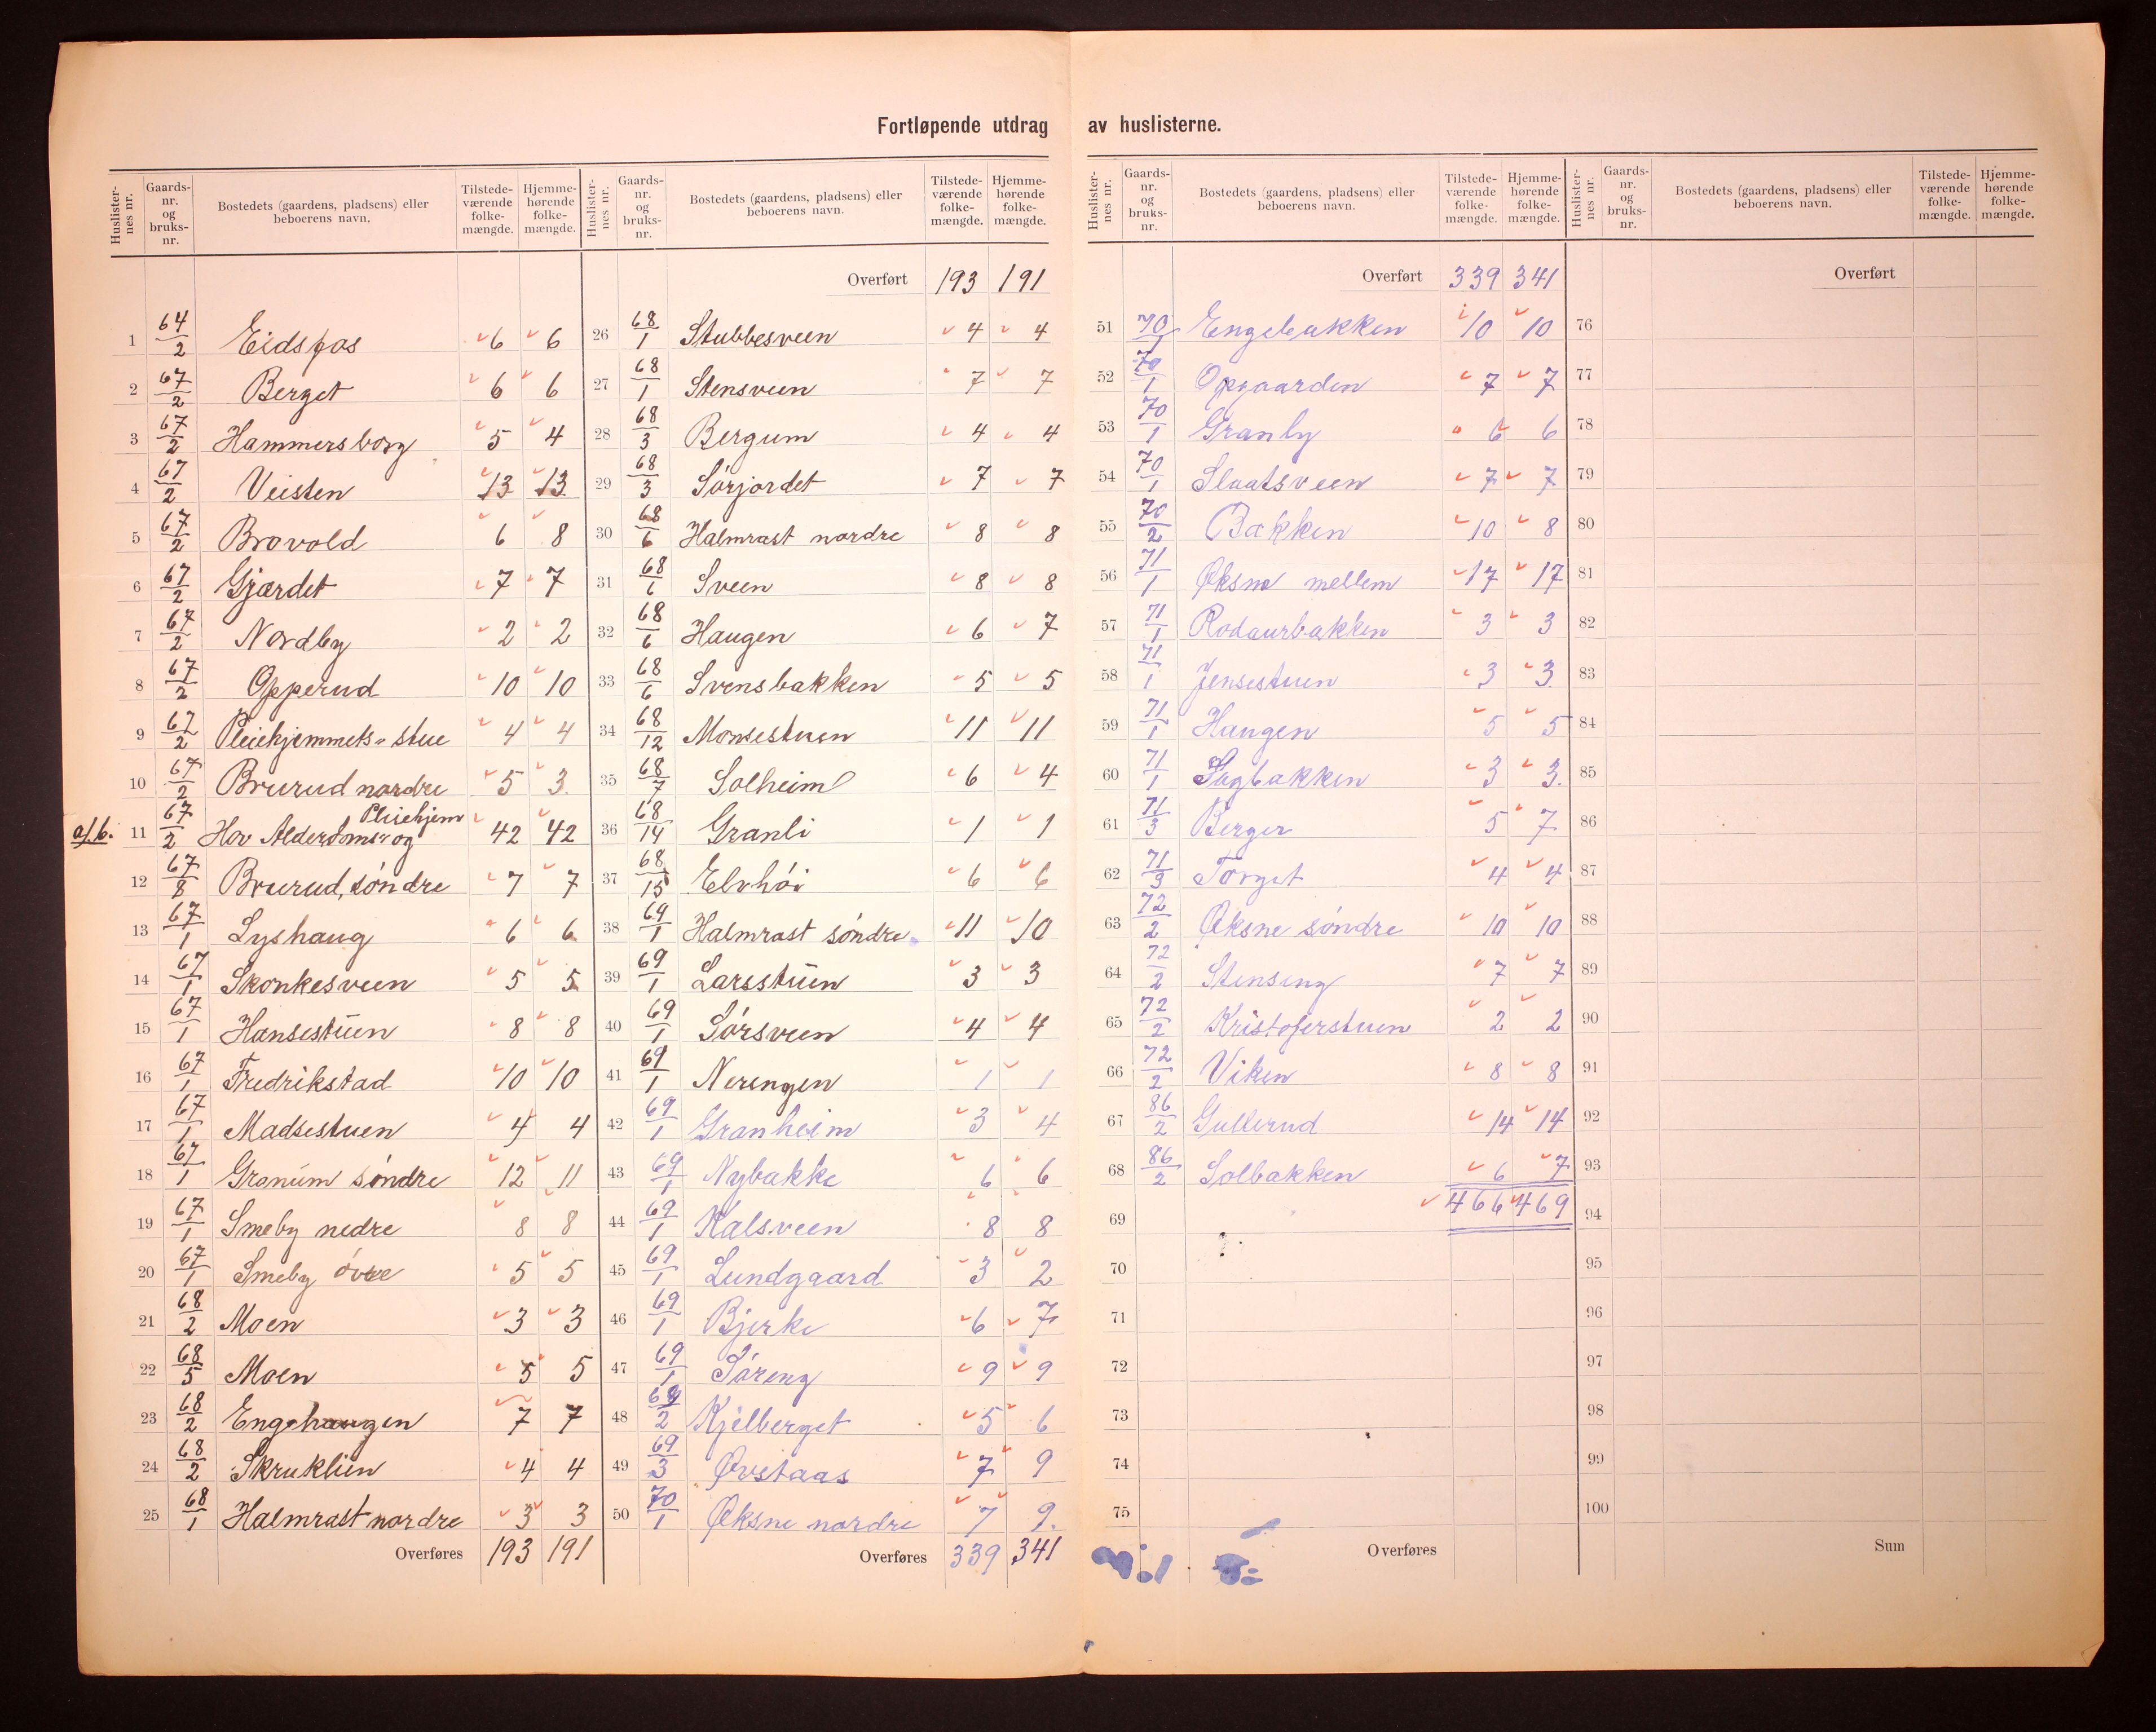 Fortløpende utdrag av huslisterne.
Huslisternes nr. Gaardsnr. og bruksnr. Bostedets (gaardens, pladsens) eller beboerens navn. Tilstedeværende folkemængde. Hjemmehørende folkemængde.
1 64/2 Eidsfos 6 6
2 67/2 Berget 6 6
3 67/2 Hammersborg 5 4
4 67/2 Veisten 13 13
5 67/2 Brovold 6 8
6 67/2 Gjærdet 7 7
7 67/2 Nordby 2 2
8 67/2 Opperud 10 10
9 67/2 Pleiehjemmets-stue 4 4
10 67/2 Brurud nordre 5 3
a/b. 11 67/2 Hov Alderdoms- og Pleiehjem 42 42
12 67/8 Brurud, søndre 7 7
13 67/1 Lyshaug 6 6
14 67/1 Skonkesveen 5 5
15 67/1 Hansestuen 8 8
16 67/1 Fredrikstad 10 10
17 67/1 Madsestuen 4 4
18 67/1 Granum søndre 12 11
19 67/1 Smeby nedre 8 8
20 67/1 Smeby øvre 5 5
21 68/2 Moen 3 3
22 68/5 Moen 5 5
23 68/2 Engehaugen 7 7
24 68/2 Skruklien 4 4
25 68/1 Halmrast nordre 3 3
Overføres 193 191
Huslisternes nr. Gaardsnr. og bruksnr. Bostedets (gaardens, pladsens) eller beboerens navn. Tilstedeværende folkemængde. Hjemmehørende folkemængde.
Overført 193 191
26 68/1 Stubbesveen 4 4
27 68/1 Stensveen 7 7
28 68/3 Bergum 4 4
29 68/3 Sørjordet 7 7
30 68/6 Halmrast nordre 8 8
31 68/6 Sveen 8 8
32 68/6 Haugen 6 7
33 68/6 Svensbakken 5 5
34 68/12 Monsestuen 11 11
35 68/7 Solheim 6 4
36 68/14 Granli 1 1
37 68/15 Elvhøi 6 6
38 69/1 Halmrast søndre 11 10
39 69/1 Larsstuen 3 3
40 69/1 Sørsveen 4 4
41 69/1 Nerengen 1 1
42 69/1 Granheim 3 4
43 69/1 Nybakke 6 6
44 69/1 Kalsveen 8 8
45 69/1 Lundgaard 3 2
46 69/1 Bjerke 6 7
47 69/1 Søreng 9 9
48 69/2 Kjelberget 5 6
49 69/3 Øvstaas 7 9
50 70/1 Øksne nordre 7 9.
Overføres 339 341
Huslisternes nr. Gaardsnr. og bruksnr. Bostedets (gaardens, pladsens) eller beboerens navn. Tilstedeværende folkemængde. Hjemmehørende folkemængde.
Overført 339 341
51 70/1 Engebakken 10 10
52 70/1 Opgaarden 7 7
53 70/1 Granly 6 6
54 70/1 Slaatsveen 7 7
55 70/2 Bakken 10 8
56 71/1 Øksne mellem 17 17
57 71/1 Rodaurbakken 3 3
58 71/1 Jensestuen 3 3
59 71/1 Haugen 5 5
60 71/1 Sagbakken 3 3.
61 71/3 Berger 5 7
62 71/3 Torget 4 4
63 72/2 Øksne søndre 10 10
64 72/2 Stenseng 7 7
65 72/2 Kristoferstuen 2 2
66 72/2 Viken 8 8
67 86/2 Gullerud 14 14
68 86/2 Solbakken 6 7
69 466 469
70
71
72
73
74
75
Overføres
Huslisternes nr. Gaardsnr. og bruksnr. Bostedets (gaardens, pladsens) eller beboerens navn. Tilstedeværende folkemængde. Hjemmehørende folkemængde.
Overført
76
77
78
79
80
81
82
83
84
85
86
87
88
89
90
91
92
93
94
95
96
97
98
99
100
Sum